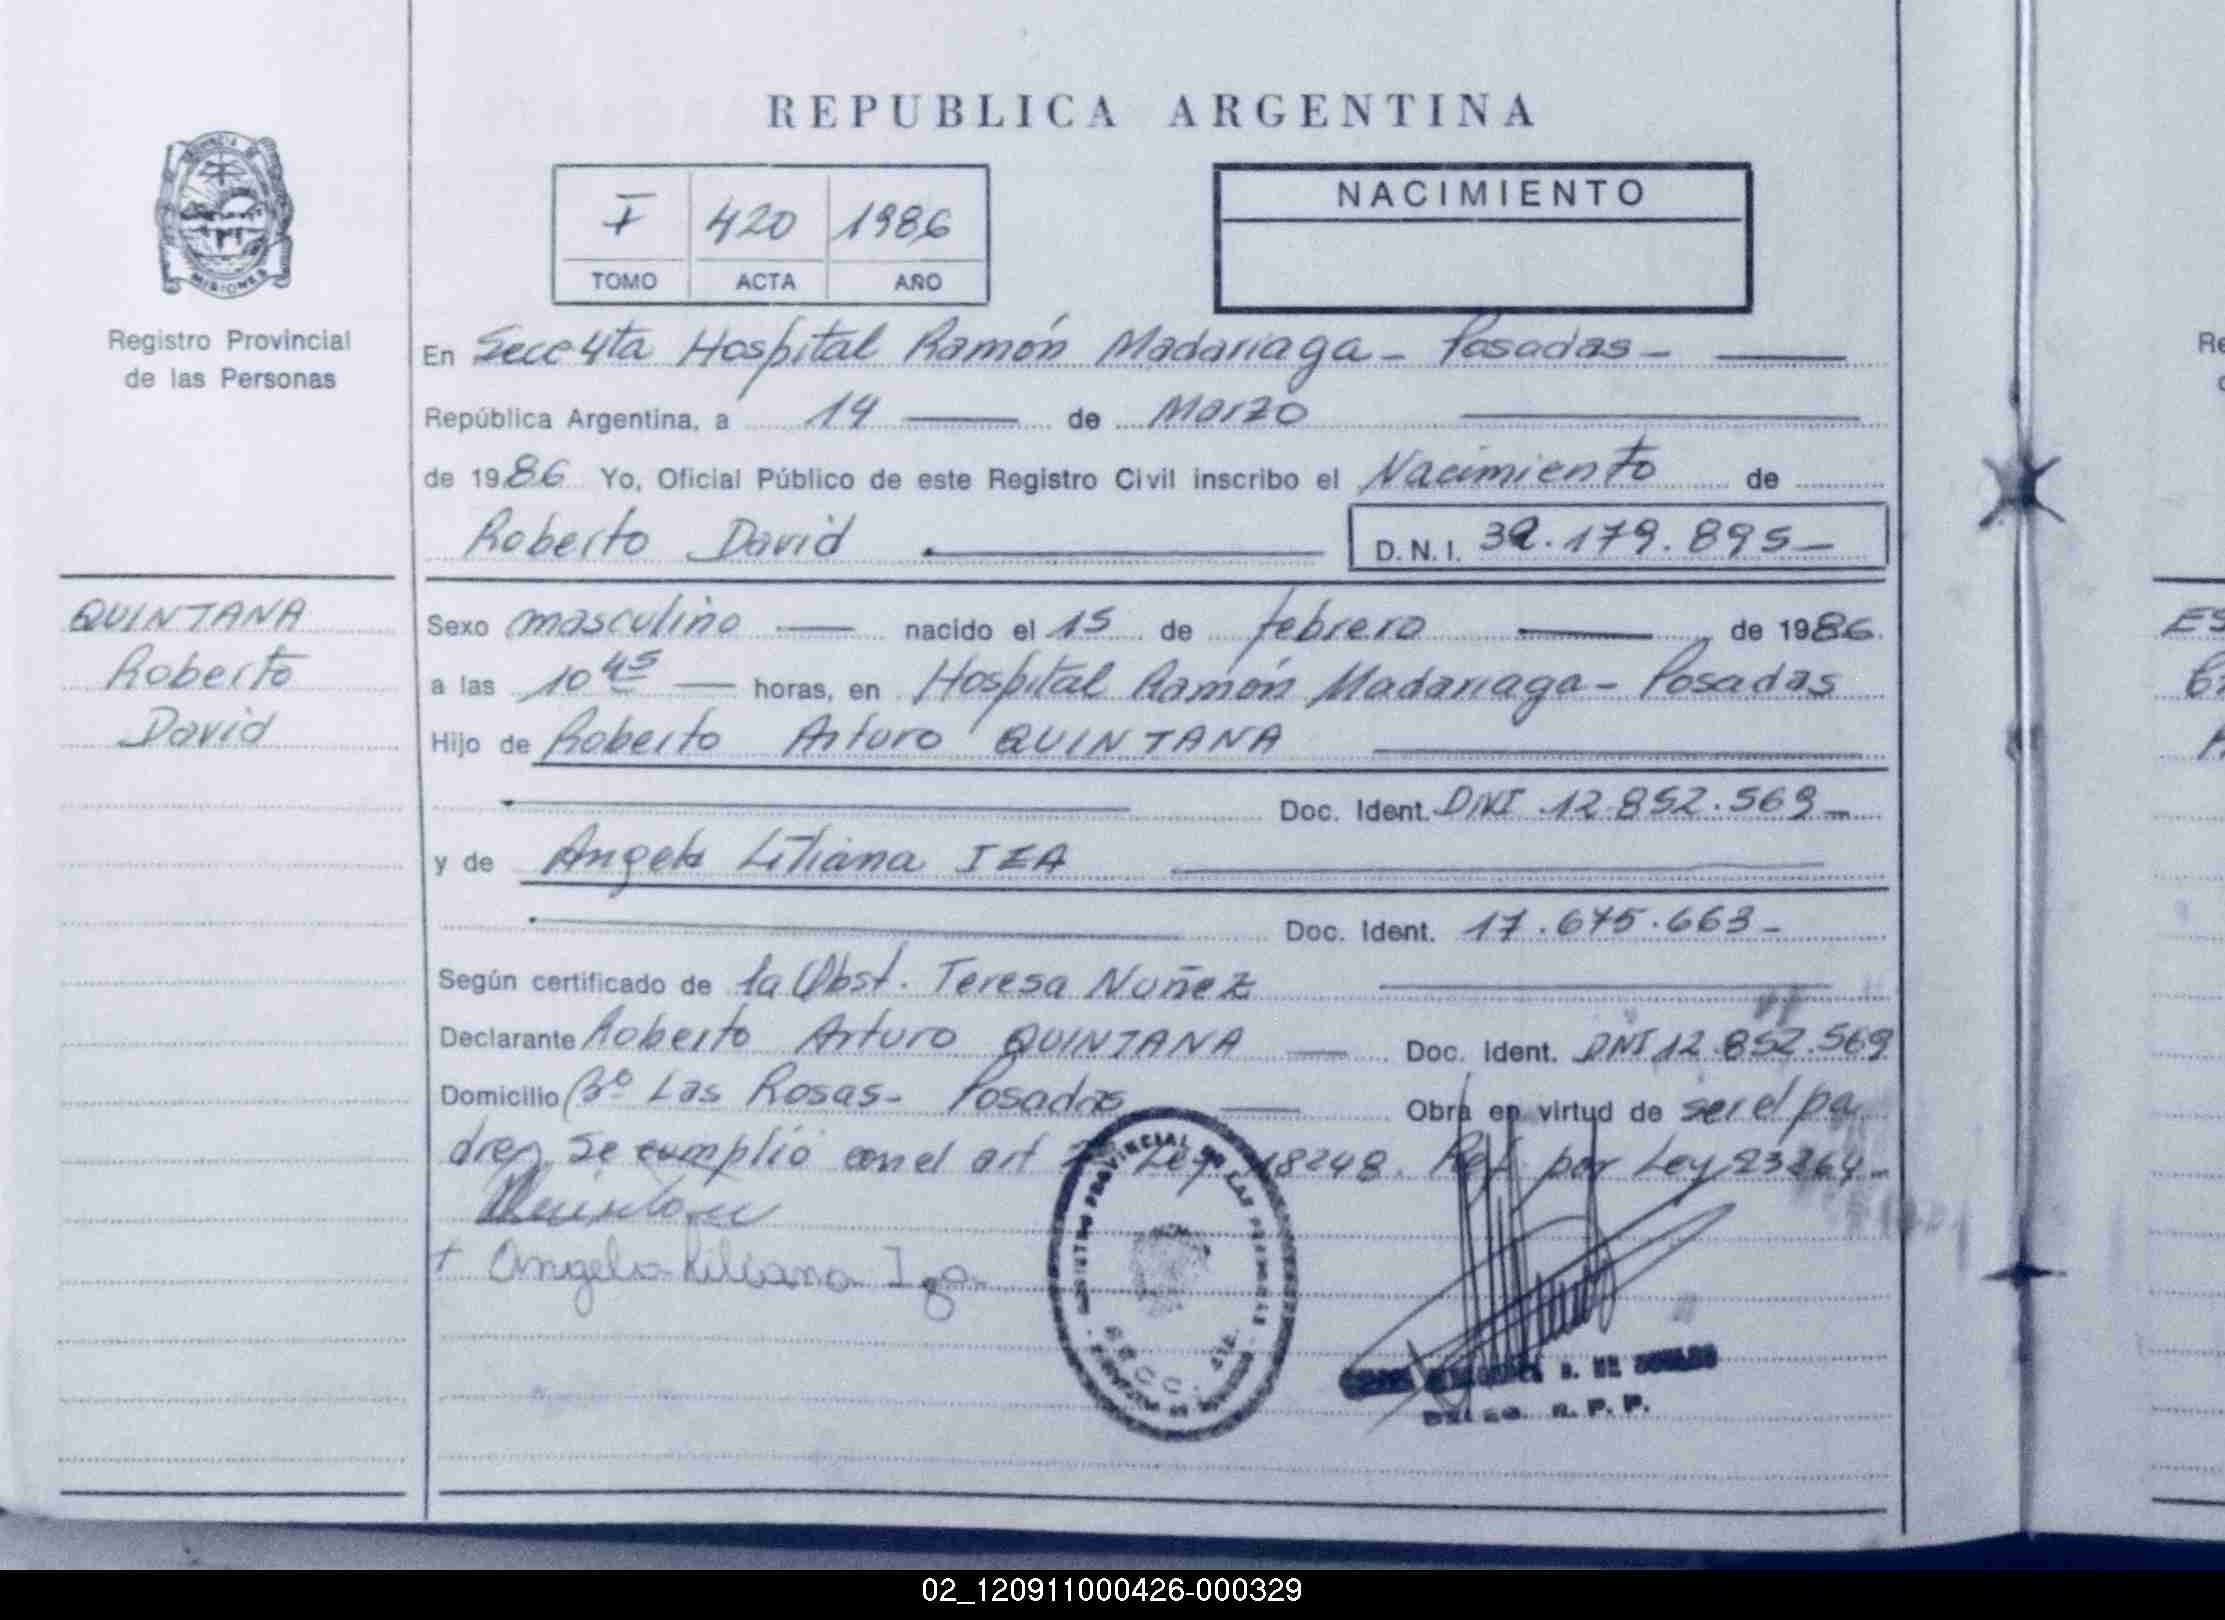 REPUBLICA ARGENTINA
PROVINCIA DE
MISIONES
Registro Provincial
de las Personas
I 420 1986
TOMO ACTA AÑO
NACIMIENTO
En Secc 4ta Hospital Ramón Madariaga - Posadas -
República Argentina, a 14 de Marzo
de 1986 Yo, Oficial Público de este Registro Civil inscribo el Nacimiento de
Roberto David D.N.I. 32.179.895-
QUINTANA
Roberto
David
Sexo masculino nacido el 15 de febrero de 1986.
a las 10 45 horas, en Hospital Ramón Madariaga - Posadas
Hijo de Roberto Arturo QUINTANA
Doc. Ident. DNI 12.852.569-
y de Angela Liliana IZA
Doc. Ident. 17.675.663-
Según certificado de la Obst. Teresa Nuñez
Declarante Roberto Arturo QUINTANA Doc. Ident. DNI 12.852.569
Domicilio Bº Las Rosas - Posadas Obra en virtud de ser el pa
dre, Se cumplió con el art Ley 18248. Ref. por Ley 23264-
+ Angela Liliana Iza
REGISTRO PROVINCIAL DE LAS PERSONAS
SECC. 4TA.
R. P. P.
Re
ES
02_120911000426-000329